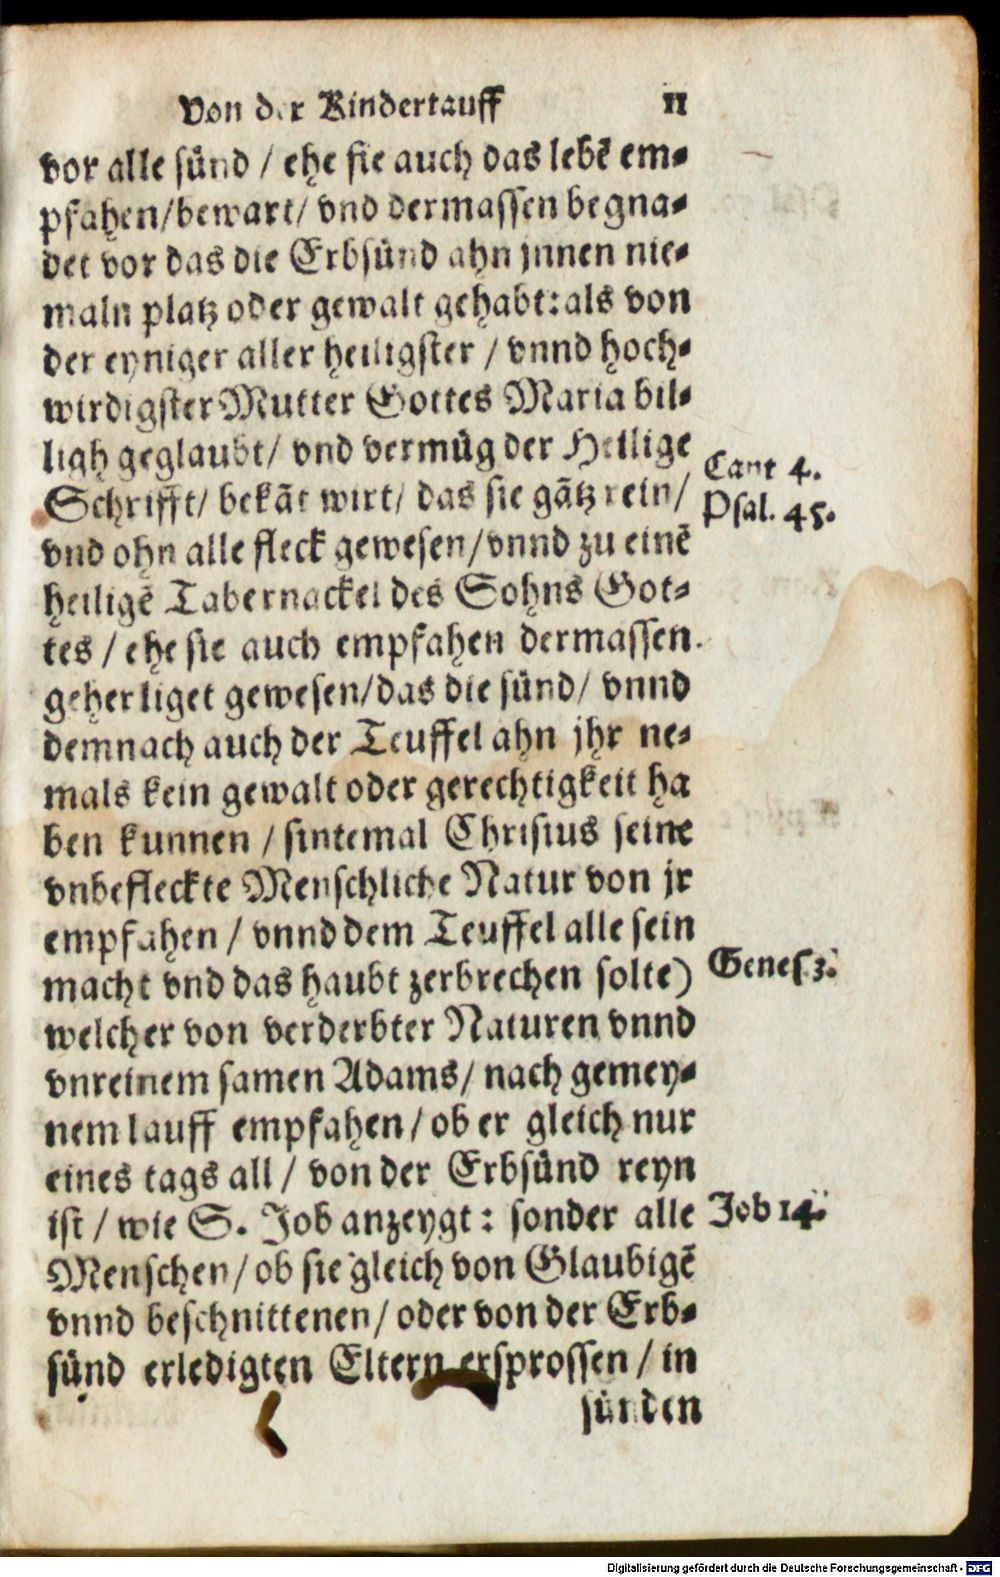 Von der Kindertauff 11
vor alle sünd / ehe sie auch das lebē em⸗
pfahen/bewart/ vnd dermassen begna⸗
det vor das die Erbsünd ahn jnnen nie⸗
maln platz oder gewalt gehabt:als von
der eyniger aller heiligster / vnnd hoch⸗
wirdigster Mutter Gottes Maria bil⸗
ligh geglaubt/ vnd vermüg der Heilige
Cant 4.
Schrifft/ bekāt wirt/ das sie gātz rein/
Psal. 45.
vnd ohn alle fleck gewesen/vnnd zu einē
heiligē Tabernackel des Sohns Got⸗
tes / ehe sie auch empfahen dermassen
geherliget gewesen/das die sünd/ vnnd
demnach auch der Teuffel ahn jhr ne⸗
mals kein gewalt oder gerechtigkeit ha
ben kunnen / sintemal Christus seine
vnbefleckte Menschliche Natur von jr
empfahen / vnnd dem Teuffel alle sein
macht vnd das haubt zerbrechen solte)
Genes 3.
welcher von verderbter Naturen vnnd
vnreinem samen Adams/ nach gemey⸗
nem lauff empfahen / ob er gleich nur
eines tags all / von der Erbsünd reyn
ist / wie S. Job anzeygt : sonder alle
Job 14.
Menschen/ ob sie gleich von Glaubigē
vnnd beschnittenen/ oder von der Erb⸗
sünd erledigten Eltern ersprossen / in
sünden
Digitalisierung gefördert durch die Deutsche Forschungsgemeinschaft - DFG